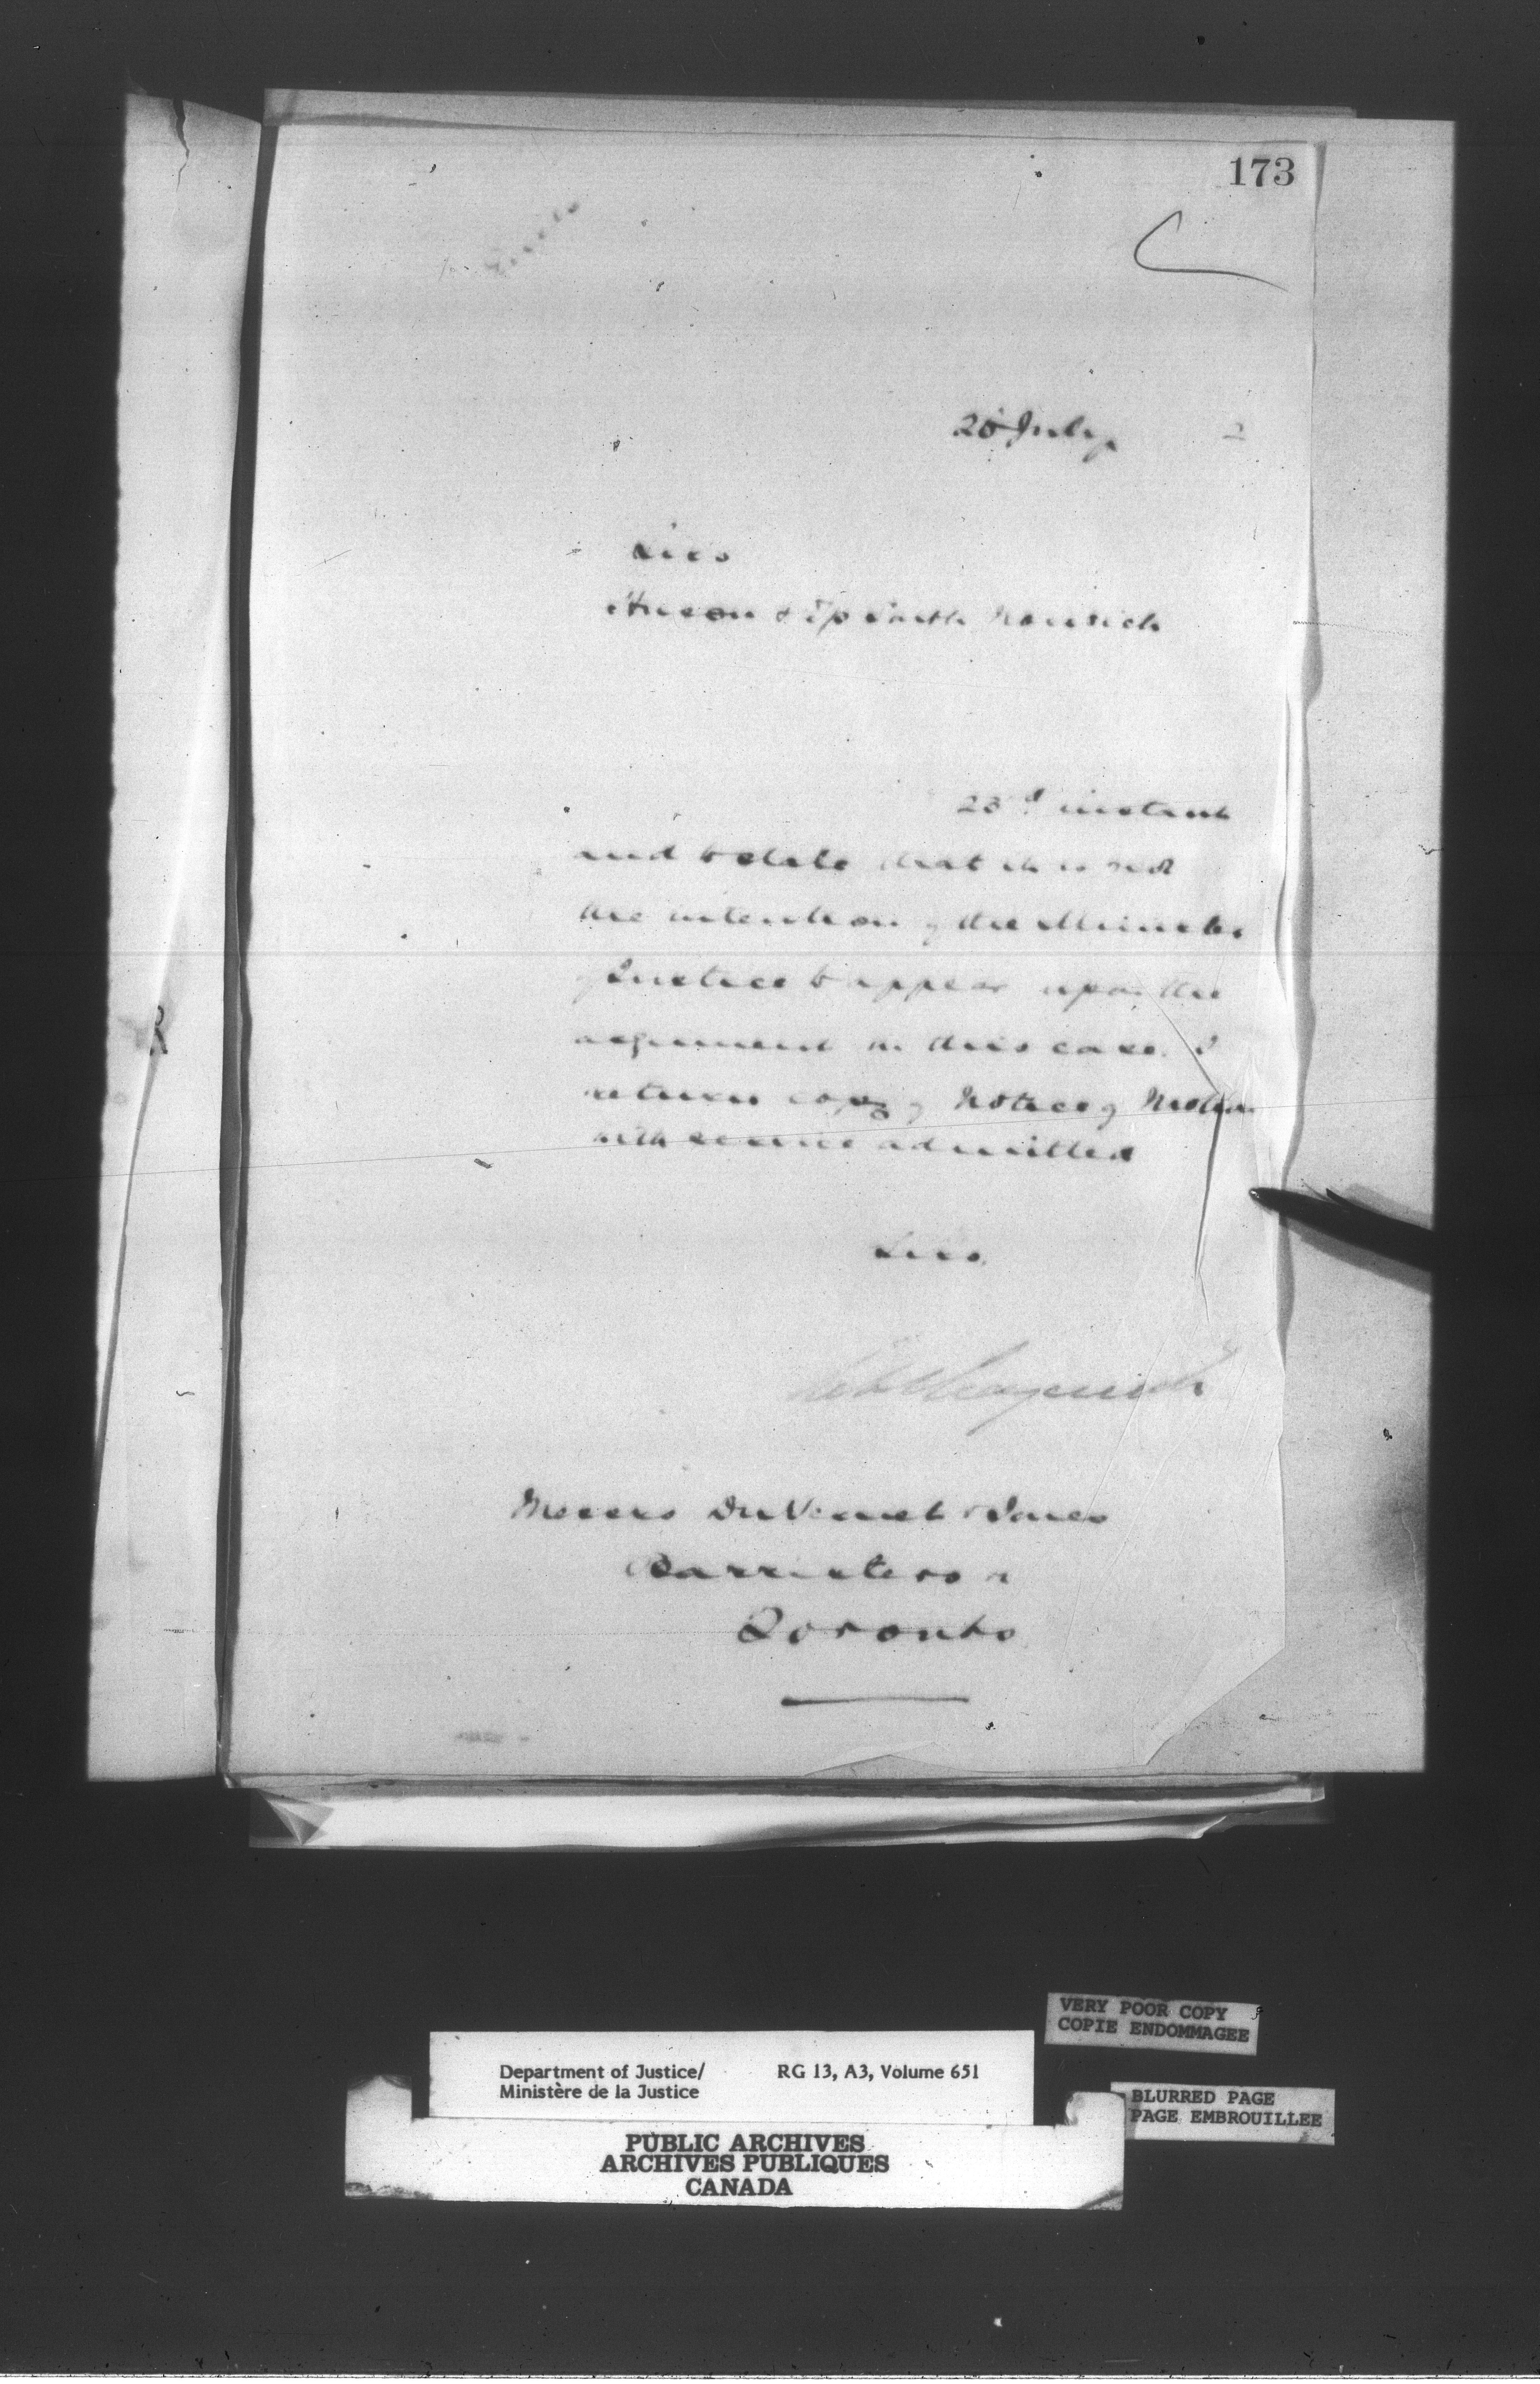 173
July 2
Sirs
Huron & Tp South Norwich
23d instant
and to state that it is not
the intention of the Minister
of Justice to appear upon the
argument in this case. I
return copy of Notice of Motion
with service admitted
Sirs.
Messrs DuVernet & Jones
Barristers
Toronto
VERY POOR COPY
COPIE ENDOMMAGEE
Department of Justice/ RG 13, A3, Volume 651
Ministère de la Justice
BLURRED PAGE
PAGE EMBROUILLEE
PUBLIC ARCHIVES
ARCHIVES PUBLIQUES
CANADA